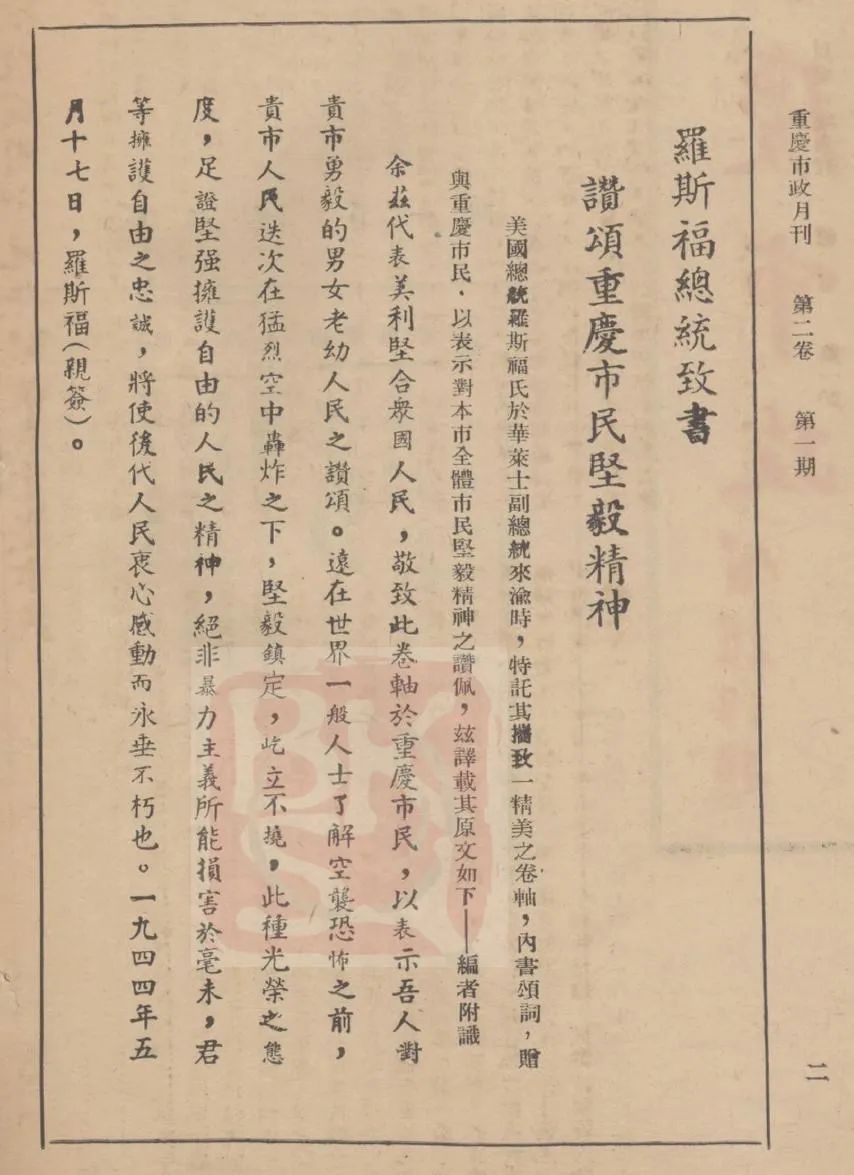 重慶市政月刊　第二卷　第一期
二
羅斯福總統致書
讚頌重慶市民堅毅精神
美國總統羅斯福氏於華萊士副總統來渝時，特託其攜致一精美之卷軸，內書頌詞，贈
與重慶市民．以表示對本市全體市民堅毅精神之讚佩，茲譯載其原文如下——編者附識
余茲代表美利堅合衆國人民，敬致此卷軸於重慶市民，以表示吾人對
貴市勇毅的男女老幼人民之讚頌。遠在世界一般人士了解空襲恐怖之前，
貴市人民迭次在猛烈空中轟炸之下，堅毅鎮定，屹立不撓，此種光榮之態
度，足證堅强擁護自由的人民之精神，絕非暴力主義所能損害於毫末，君
等擁護自由之忠誠，將使後代人民衷心感動而永垂不朽也。一九四四年五
月十七日，羅斯福（親簽）。